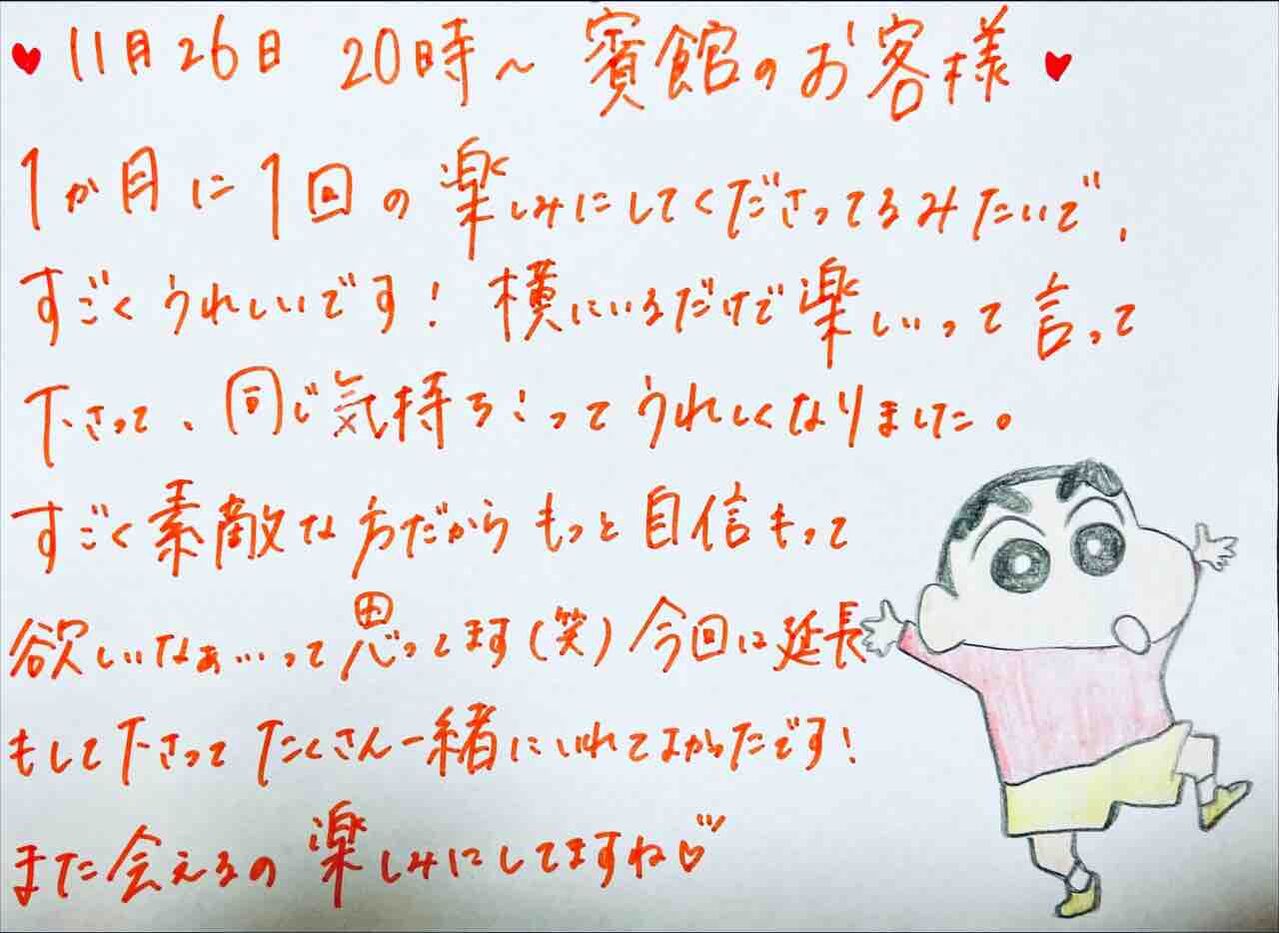 ♥11月26日 20時～賓館のお客様♥
1か月に1回の楽しみにしてくださってるみたいで、
すごくうれしいです！横にいるだけで楽しいって言って
下さって、同じ気持ち！ってうれしくなりました。
すごく素敵な方だからもっと自信もって
欲しいなぁ…って思ってます(笑)今回は延長
もして下さってたくさん一緒にいれてよかったです！
また会えるの楽しみにしてますね♡